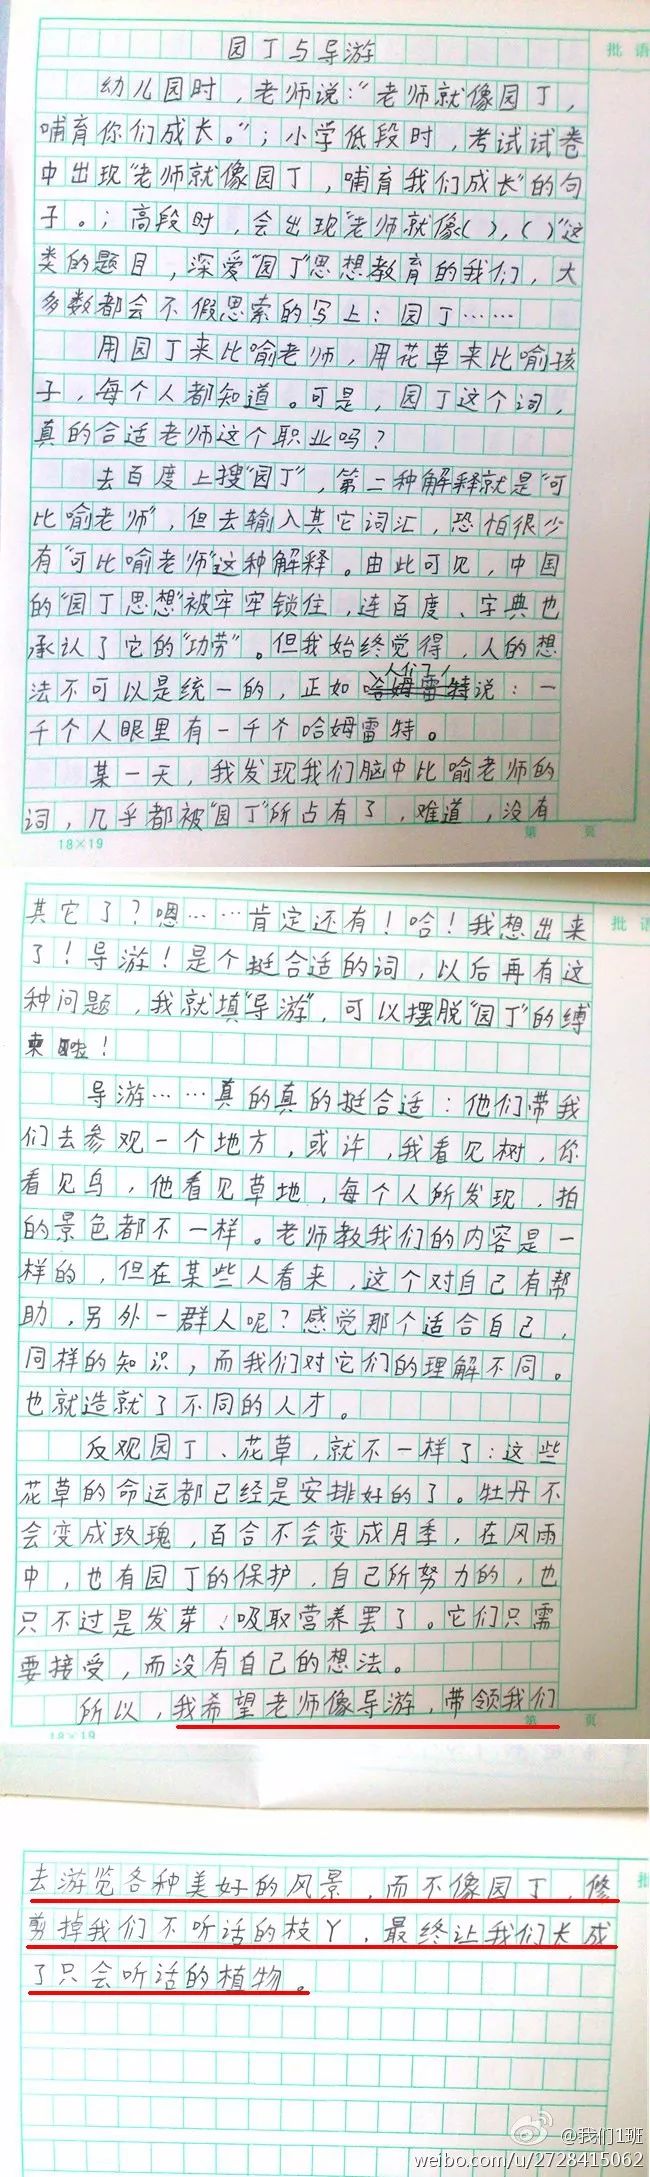 园丁与导游
批语
幼儿园时，老师说：“老师就像园丁，
哺育你们成长。”；小学低段时，考试试卷
中出现“老师就像园丁，哺育我们成长”的句
子。；高段时，会出现“老师就像（ ），（ ）”这
类的题目，深爱“园丁”思想教育的我们，大
多数都会不假思索的写上：园丁……
用园丁来比喻老师，用花草来比喻孩
子，每个人都知道。可是，园丁这个词，
真的合适老师这个职业吗？
去百度上搜“园丁”，第二种解释就是“可
比喻老师”，但去输入其它词汇，恐怕很少
有“可比喻老师”这种解释。由此可见，中国
的“园丁思想”被牢牢锁住，连百度、字典也
承认了它的“功劳”。但我始终觉得，人的想
法不可以是统一的，正如人们说：一
千个人眼里有一千个哈姆雷特。
某一天，我发现我们脑中比喻老师的
词，几乎都被“园丁”所占有了，难道，没有
18×19
第 页
其它了？嗯……肯定还有！哈！我想出来
批语
了！导游！是个挺合适的词，以后再有这
种问题，我就填“导游”，可以摆脱“园丁”的缚
束啦！
导游……真的真的挺合适：他们带我
们去参观一个地方，或许，我看见树，你
看见鸟，他看见草地，每个人所发现、拍
的景色都不一样。老师教我们的内容是一
样的，但在某些人看来，这个对自己有帮
助，另外一群人呢？感觉那个适合自己，
同样的知识，而我们对它们的理解不同。
也就造就了不同的人才。
反观园丁、花草，就不一样了：这些
花草的命运都已经是安排好的了。牡丹不
会变成玫瑰，百合不会变成月季，在风雨
中，也有园丁的保护，自己所努力的，也
只不过是发芽、吸取营养罢了。它们只需
要接受，而没有自己的想法。
所以，我希望老师像导游，带领我们
18×19
第 页
去游览各种美好的风景，而不像园丁，修
批
剪掉我们不听话的枝丫，最终让我们长成
了只会听话的植物。
@我们1班
weibo.com/u/2728415062